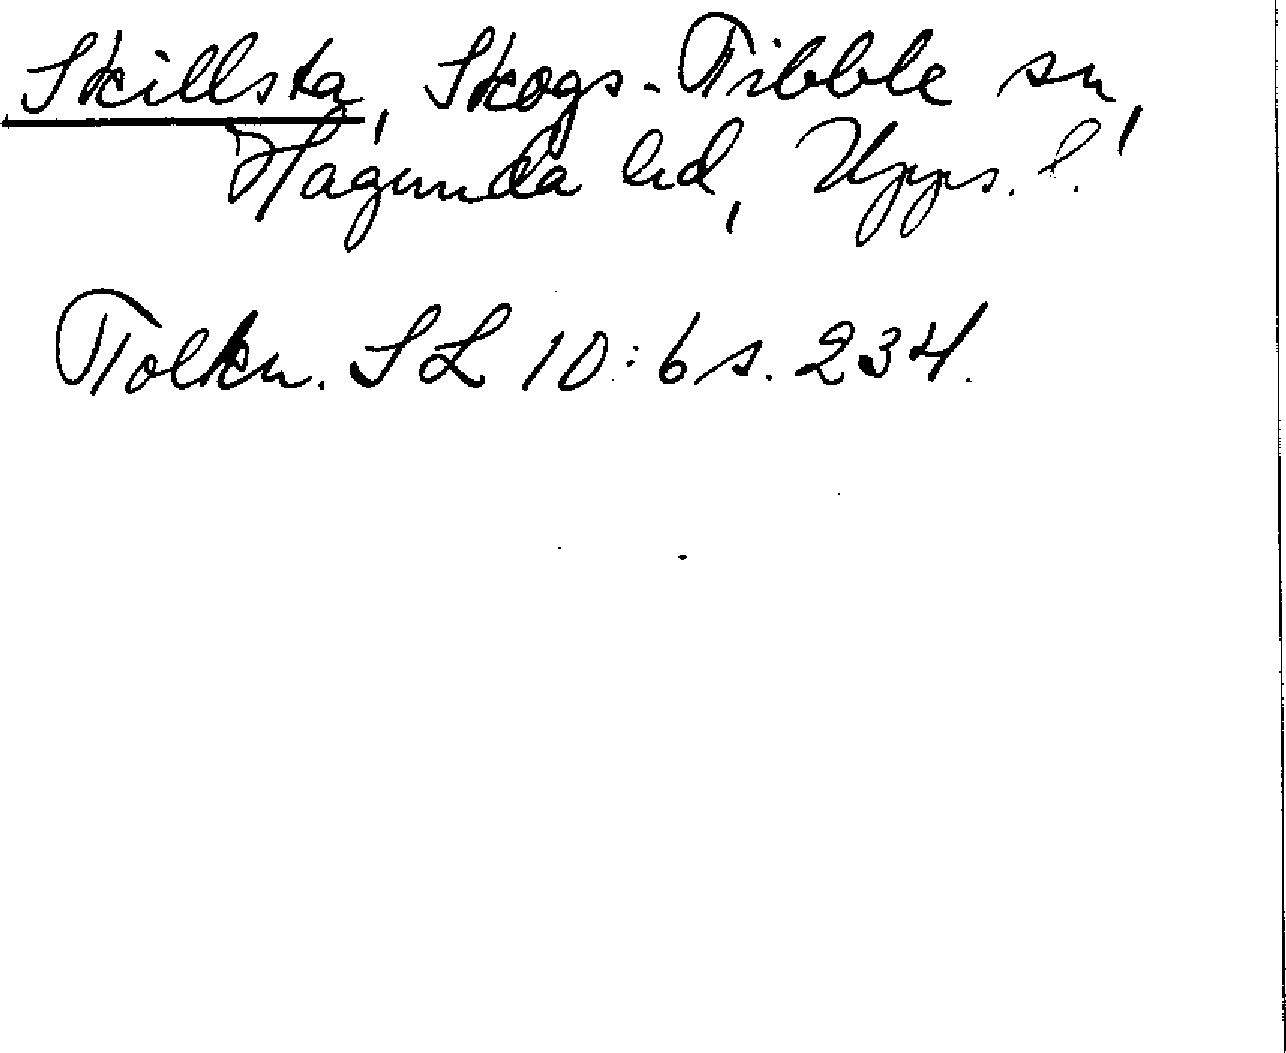 Skillsta, Skogs-Tibble sn,
Hagunda hd, Upps. l.
Tolkn. SL 10:6 s. 234.